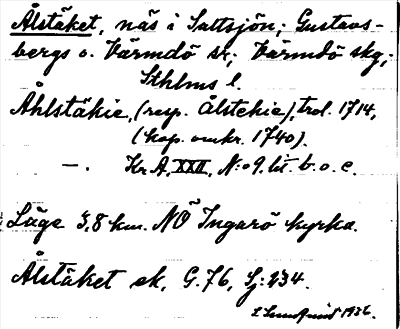 Ålstäket, näs i Saltsjön; Gustavs-
bergs o. Värmdö sr; Värmdö skg;
Sthlms l.
Åhlstäkie, (resp. Ålstekie), trol. 1714,
(kop. omkr. 1740).
—. Kr.A. XXII, N:o 9, lit. b. o. c.
Läge 3,8 km. NÖ Ingarö kyrka.
Ålstäket ek, G. 76, Sj: 234.
Lundquist 1936.